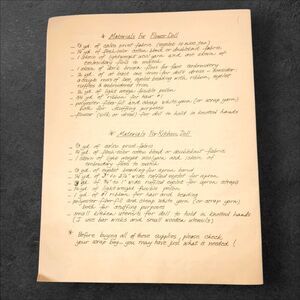 * Materials For Flower Doll
yd. of calico print fabric
yd. of flesh-color cotton blend or doubleknit fabric
1 skein of lightweight wool yarn and one skein of
embroidery floss to match
1 skein of dark brown floss for face embroidery
yd. of at least one trim for doll's dress - consider
straight rows of lace, eyelet beading with ribbon, eyelet
ruffles & embroidered trim
yd. of light weight fusible pellon
yd. of ribbon for hair
polyester fiber fill and cheap white yarn (or scrap yarn)
both for stuffing purposes
flower (silk or dried) for doll to hold in knotted hands
* Materials For Kitchen Doll
yd. of calico print fabric
yd. flesh-color cotton blend or doubleknit fabric
1 skein of light weight wool yarn and 1 skein of
embroidery floss to match
yd. of eyelet beading for apron band
yd. of wide ruffled eyelet for apron
yd. of wide ruffled eyelet for apron straps
yd. of light weight fusible pellon
yd. of ribbon for hair and beading
polyester fiber fill and cheap white yarn (or scrap yarn)
both for stuffing purposes
small kitchen utensils for doll to hold in knotted hands
(I use bar wisks and small wooden utensils)
* Before buying all of these supplies, please check
your scrap bag - you may have just what is needed!